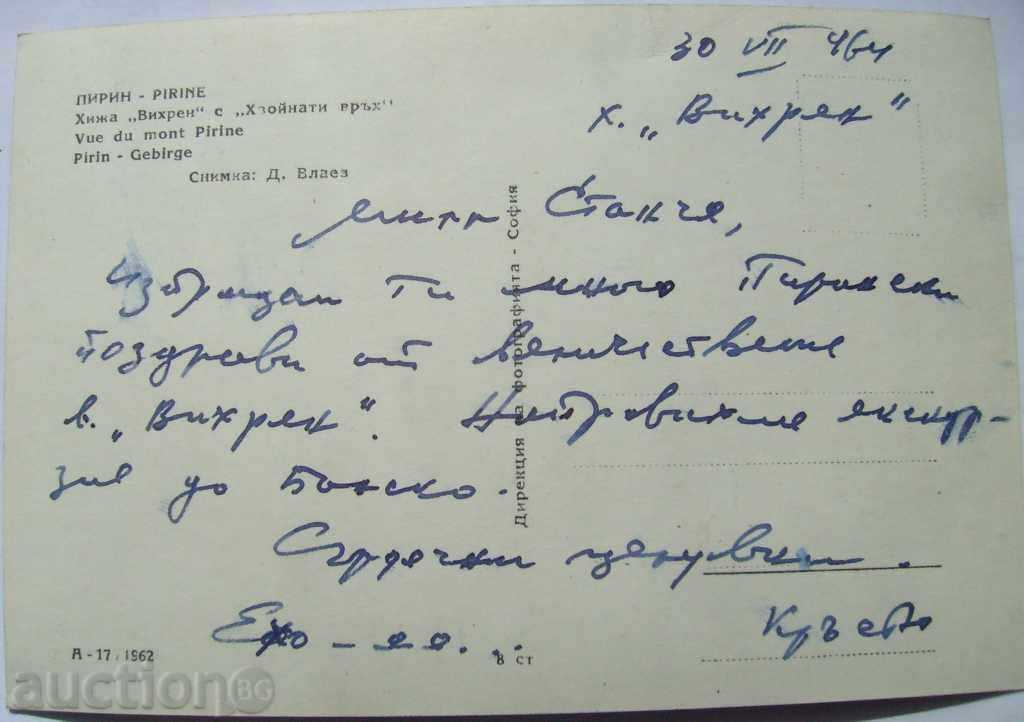 30 VII 964
х. „Вихрен"
ПИРИН - PIRINE
Хижа „Вихрен" с „Хвойнати връх"
Vue du mont Pirine
Pirin - Gebirge
Снимка: Д. Влаев
Мили Станче,
Изпращам ти много Пирински
поздрави от величествения
в. „Вихрен". Направихме екскур-
зия до Банско.
Сърдечни целувки.
Ехо - ее...
Кръстю
Дирекция на фотографията - София
А - 17, 1962
8 ст
auctionBG